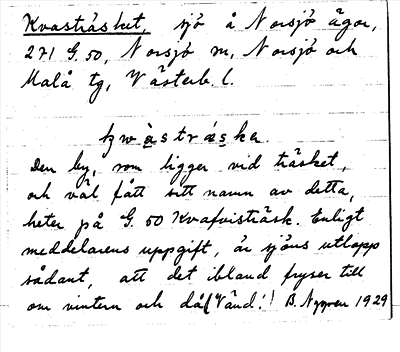 Kvasträsket, sjö å Norsjö ägor,
271 G. 50, Norsjö sn, Norsjö och
Malå tg, Västerb. l.
kwàstrǽska.
Den by, som ligger vid träsket,
och väl fått sitt namn av detta,
heter på G. 50 Kvafvisträsk. Enligt
meddelarens uppgift, är sjöns utlopp
sådant, att det ibland fryser till
om vintern och då (Vänd!) B. Nygren 1929